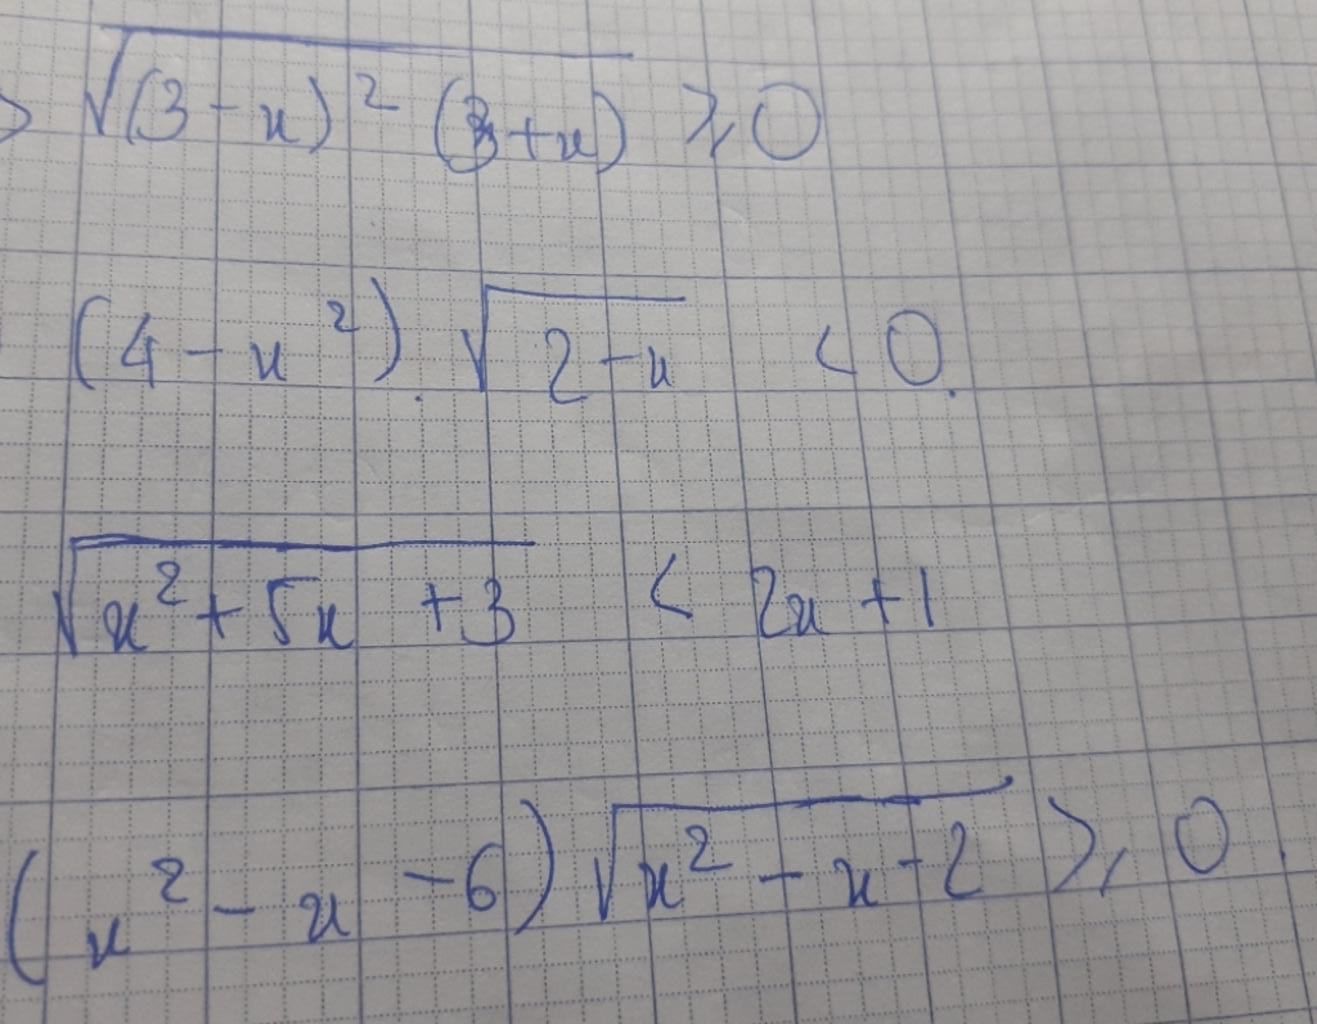 > √((3-x)² (3+x)) ≥ 0
(4-x²).√(2-x) < 0.
√(x²+5x+3) < 2x+1
(x²-x-6)√(x²-x-2) ≥ 0.